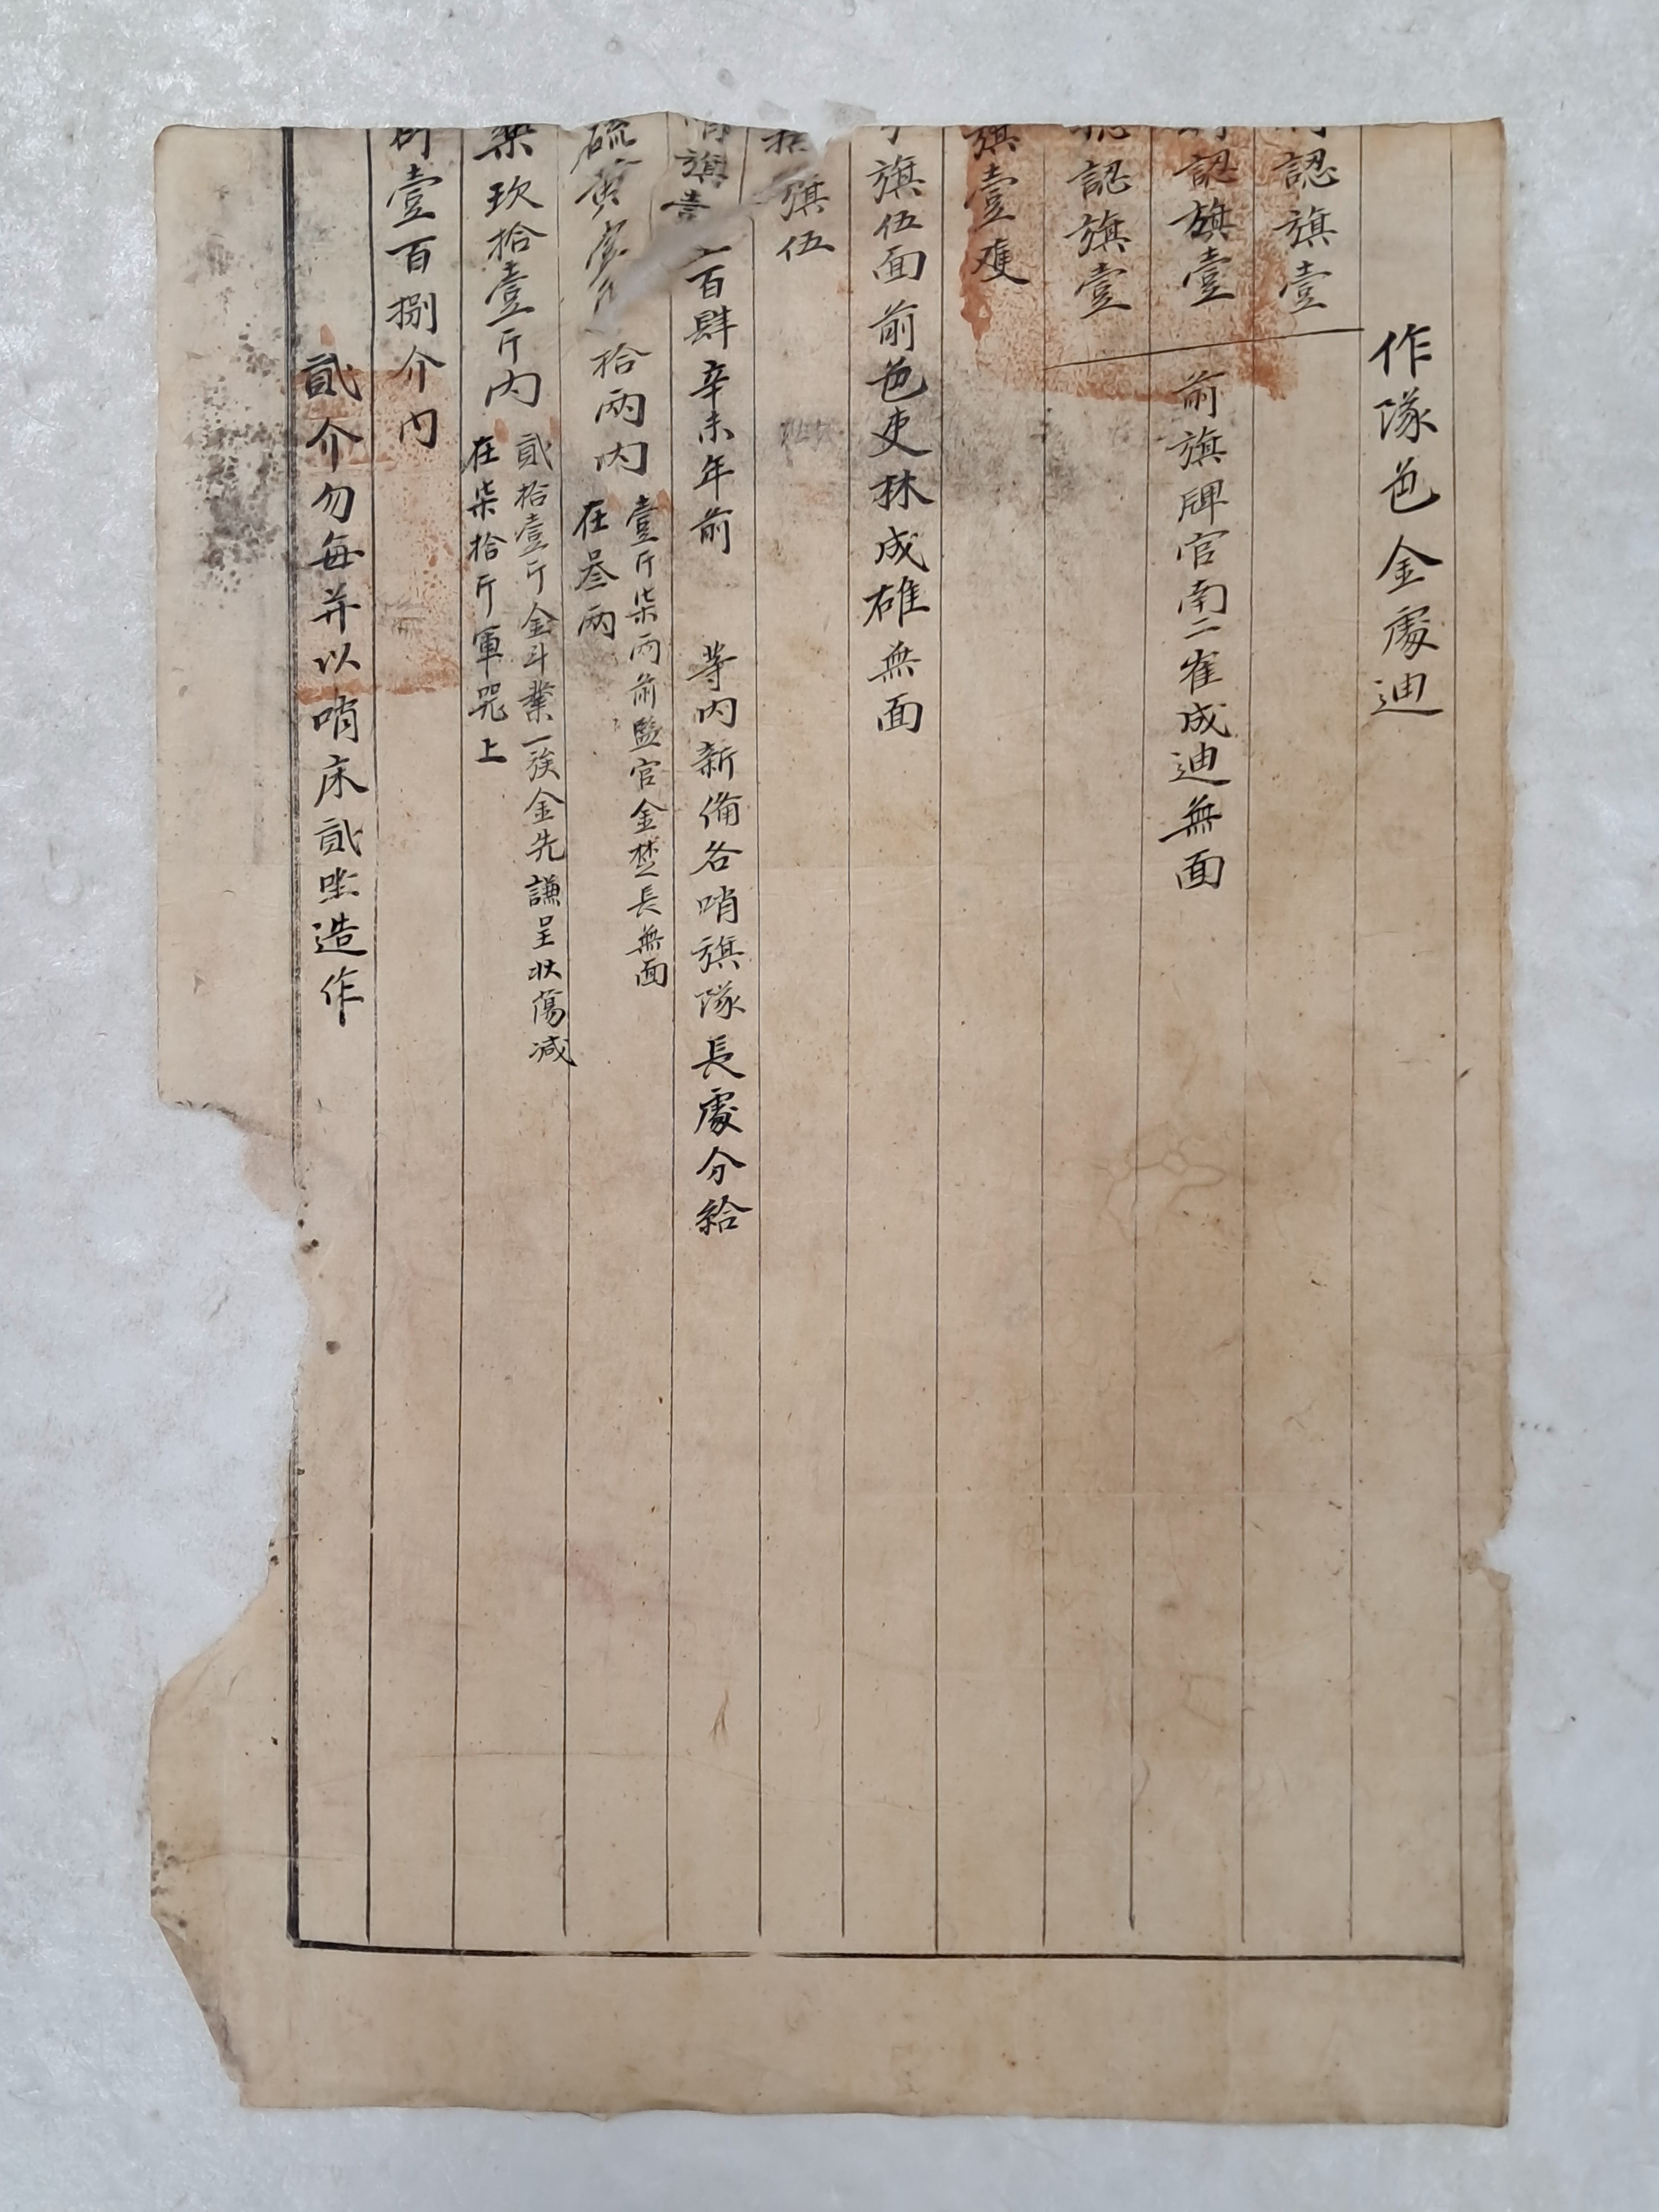 作隊色金處迪
認旗壹
認旗壹 前旗牌官南二崔成迪無面
認旗壹
旗壹隻
旗伍面前色吏林成雄無面
旗伍
旗壹百肆辛未年前 等內新備各哨旗隊長處分給
硫黃 拾兩內 壹斤柒兩前監官金楚長無面
在叄兩
藥玖拾壹斤內 貳拾壹斤金斗業一族金先謙呈狀蕩减
在柒拾斤軍器上
壹百捌介內
貳介勿每并以哨床貳坐造作